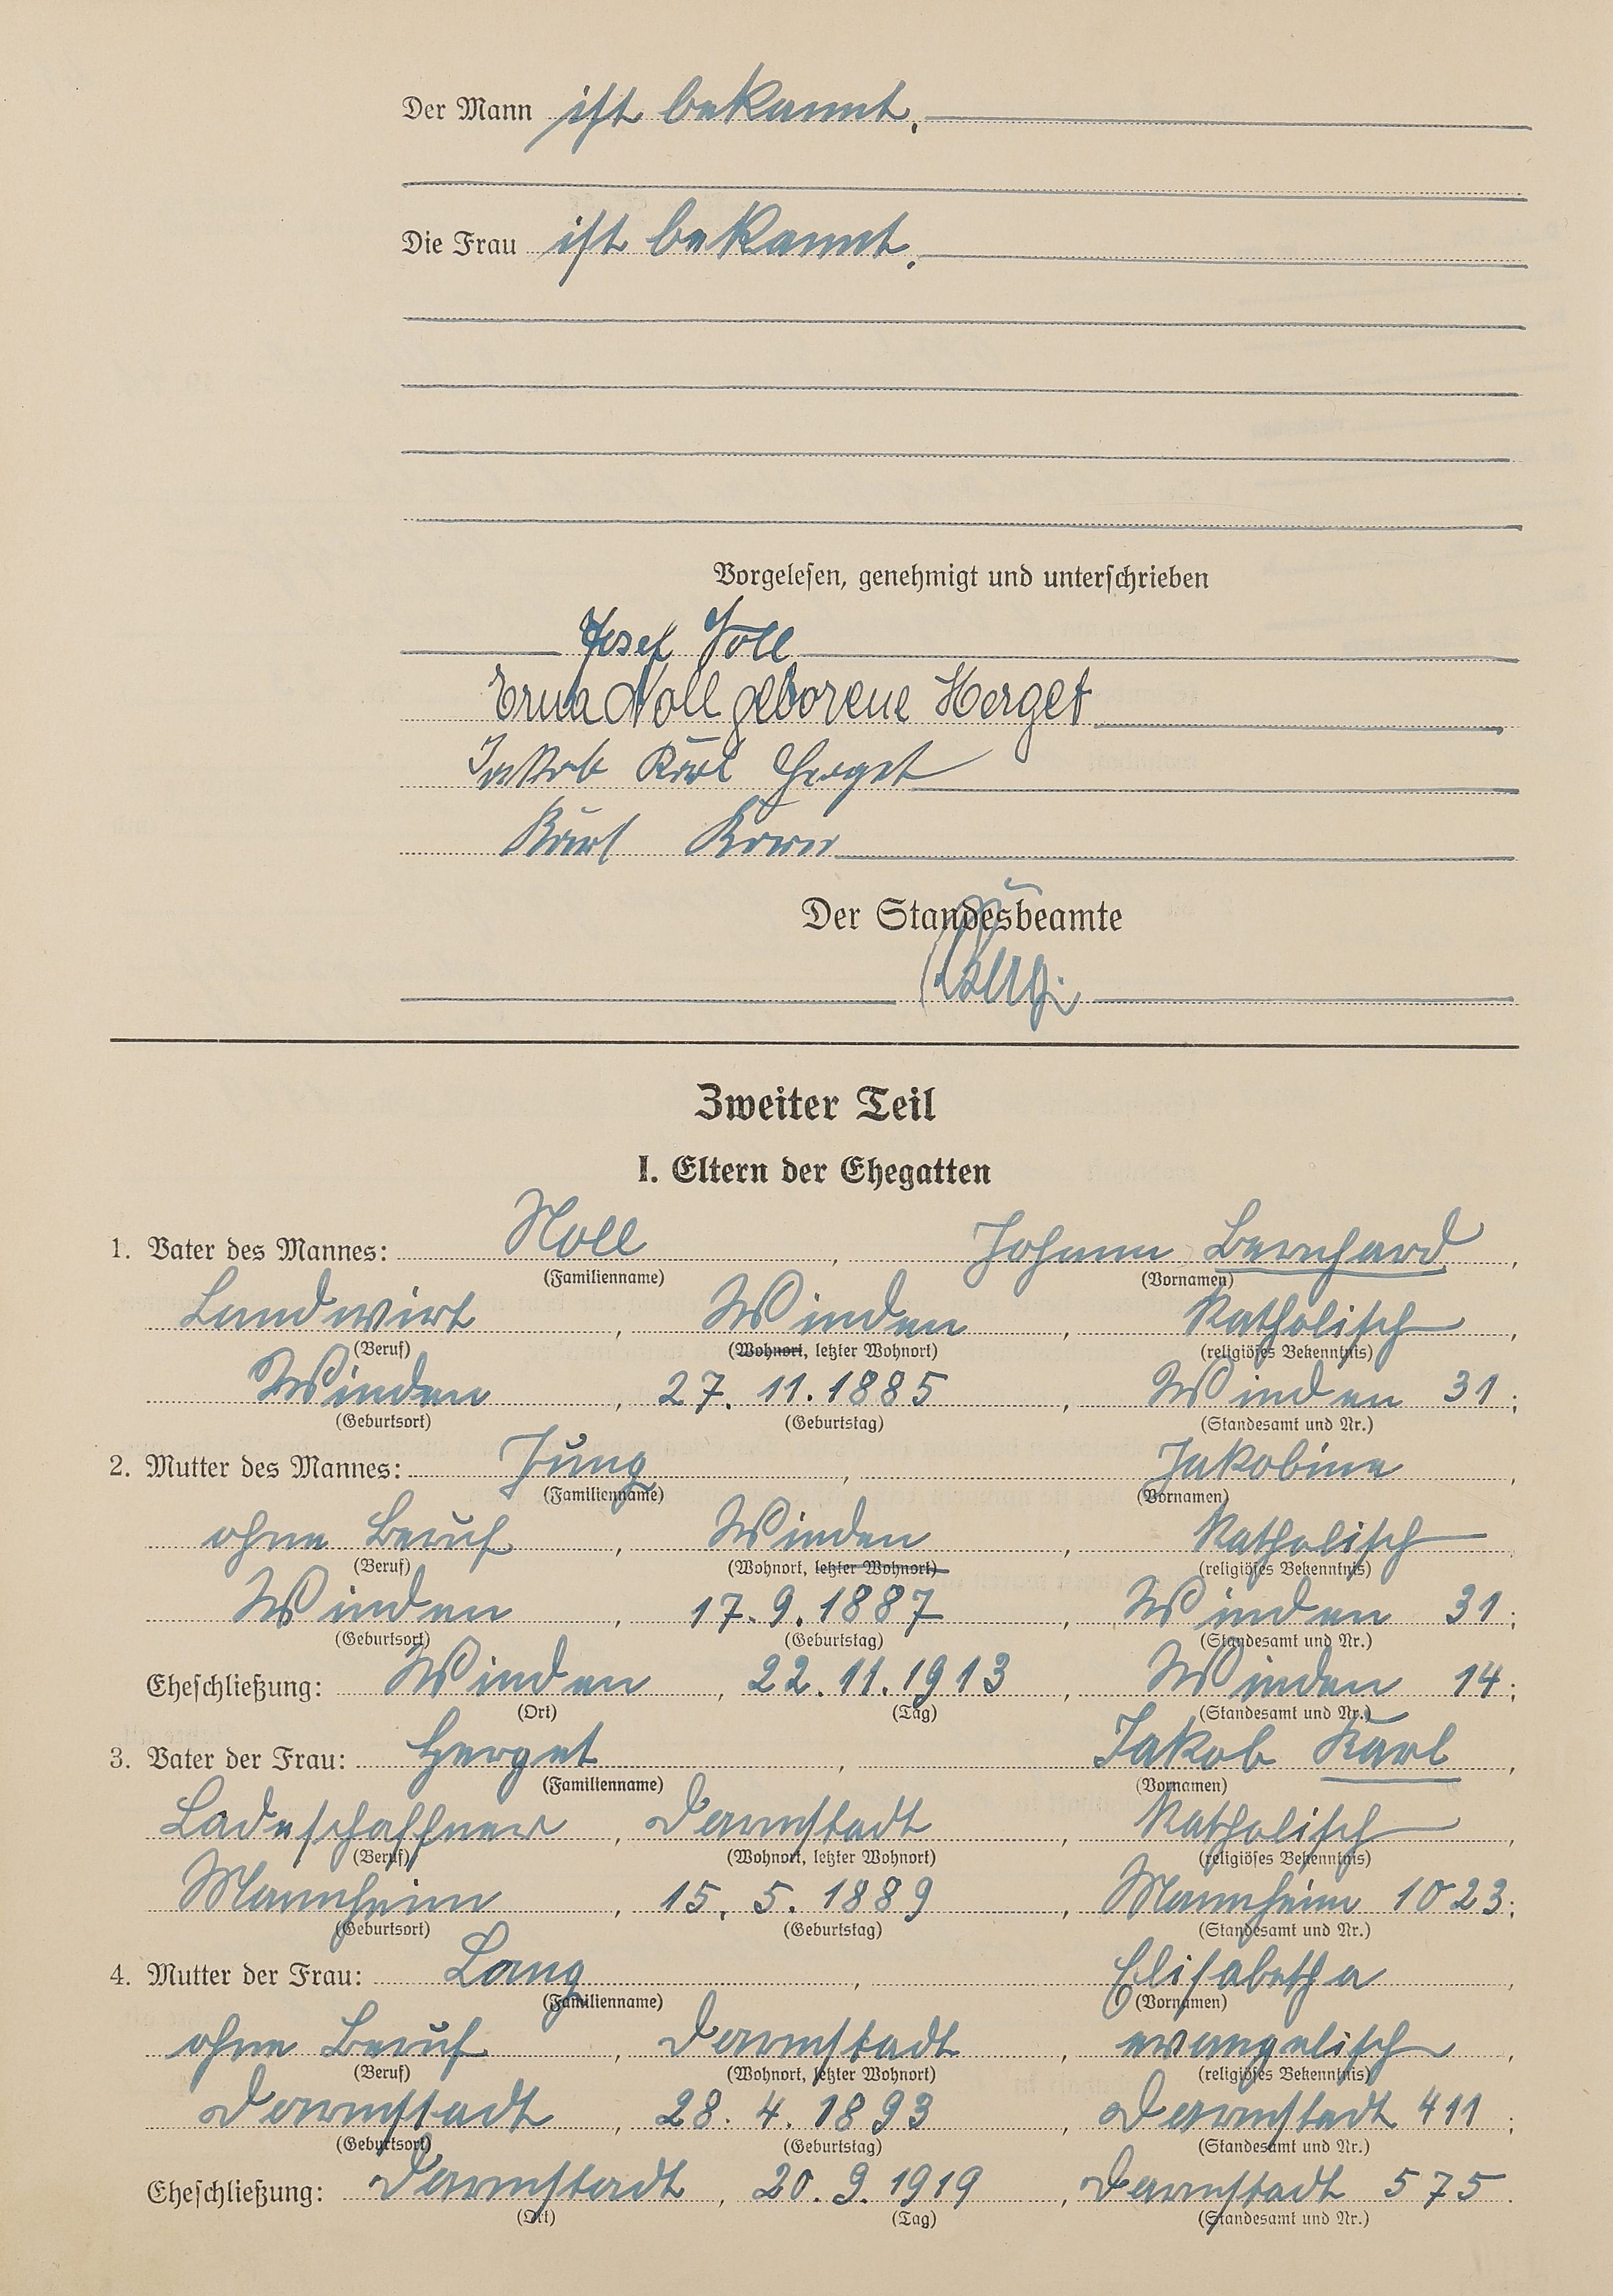 Der Mann ist bekannt.
Die Frau ist bekannt.
Vorgelesen, genehmigt und unterschrieben
Josef Noll
Erna Noll geborene Herget
Jakob Karl Herget
Karl
Der Standesbeamte
Zweiter Teil
I. Eltern der Ehegatten
1. Vater des Mannes: Noll, Johann Bernhard,
(Familienname) (Vornamen)
Landwirt, Winden, katholisch,
(Beruf) (Wohnort, letzter Wohnort) (religiöses Bekenntnis)
Winden, 27. 11. 1885, Winden 31;
(Geburtsort) (Geburtstag) (Standesamt und Nr.)
2. Mutter des Mannes: Jung, Jakobine,
(Familienname) (Vornamen)
ohne Beruf, Winden, katholisch,
(Beruf) (Wohnort, letzter Wohnort) (religiöses Bekenntnis)
Winden, 17. 9. 1887, Winden 31;
(Geburtsort) (Geburtstag) (Standesamt und Nr.)
Eheschließung: Winden, 22. 11. 1913, Winden 14;
(Ort) (Tag) (Standesamt und Nr.)
3. Vater der Frau: Herget, Jakob Karl,
(Familienname) (Vornamen)
Ladeschaffner, Darmstadt, katholisch,
(Beruf) (Wohnort, letzter Wohnort) (religiöses Bekenntnis)
Mannheim, 15. 5. 1889, Mannheim 1023;
(Geburtsort) (Geburtstag) (Standesamt und Nr.)
4. Mutter der Frau: Lang, Elisabetha,
(Familienname) (Vornamen)
ohne Beruf, Darmstadt, evangelisch,
(Beruf) (Wohnort, letzter Wohnort) (religiöses Bekenntnis)
Darmstadt, 28. 4. 1893, Darmstadt 411;
(Geburtsort) (Geburtstag) (Standesamt und Nr.)
Eheschließung: Darmstadt, 20. 9. 1919, Darmstadt 575.
(Ort) (Tag) (Standesamt und Nr.)